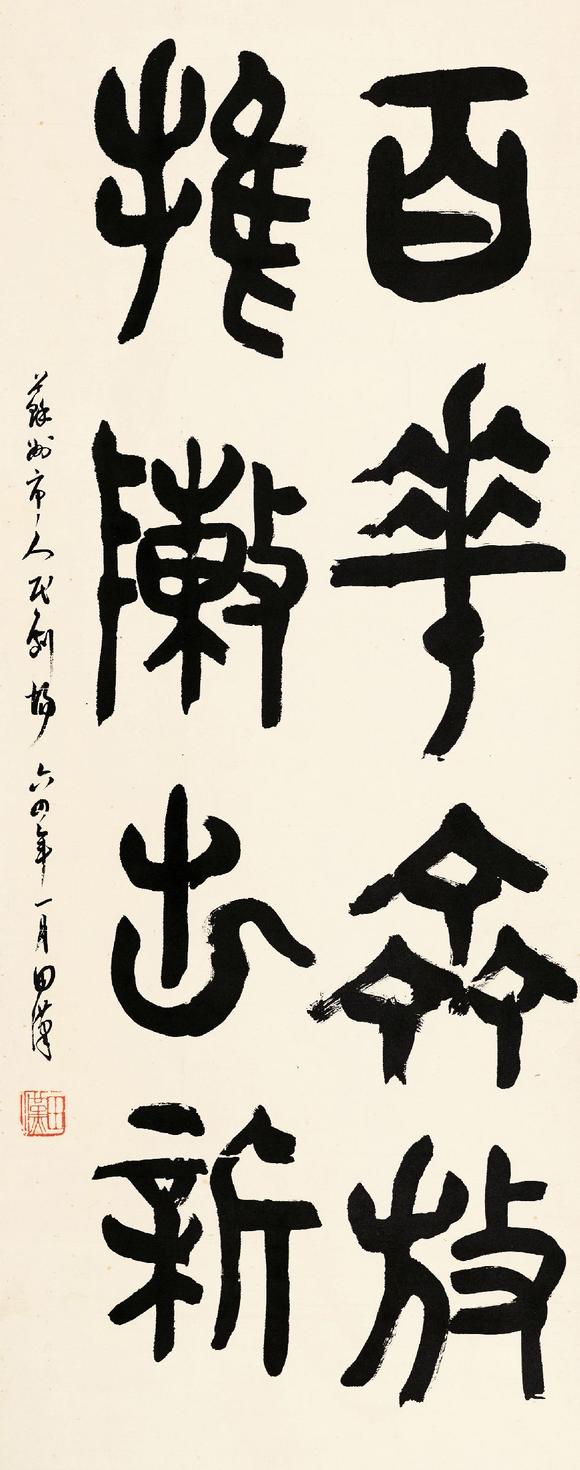 百華齊放
推敶出新
蘇州市人民劇場 六四年一月 田漢
田漢